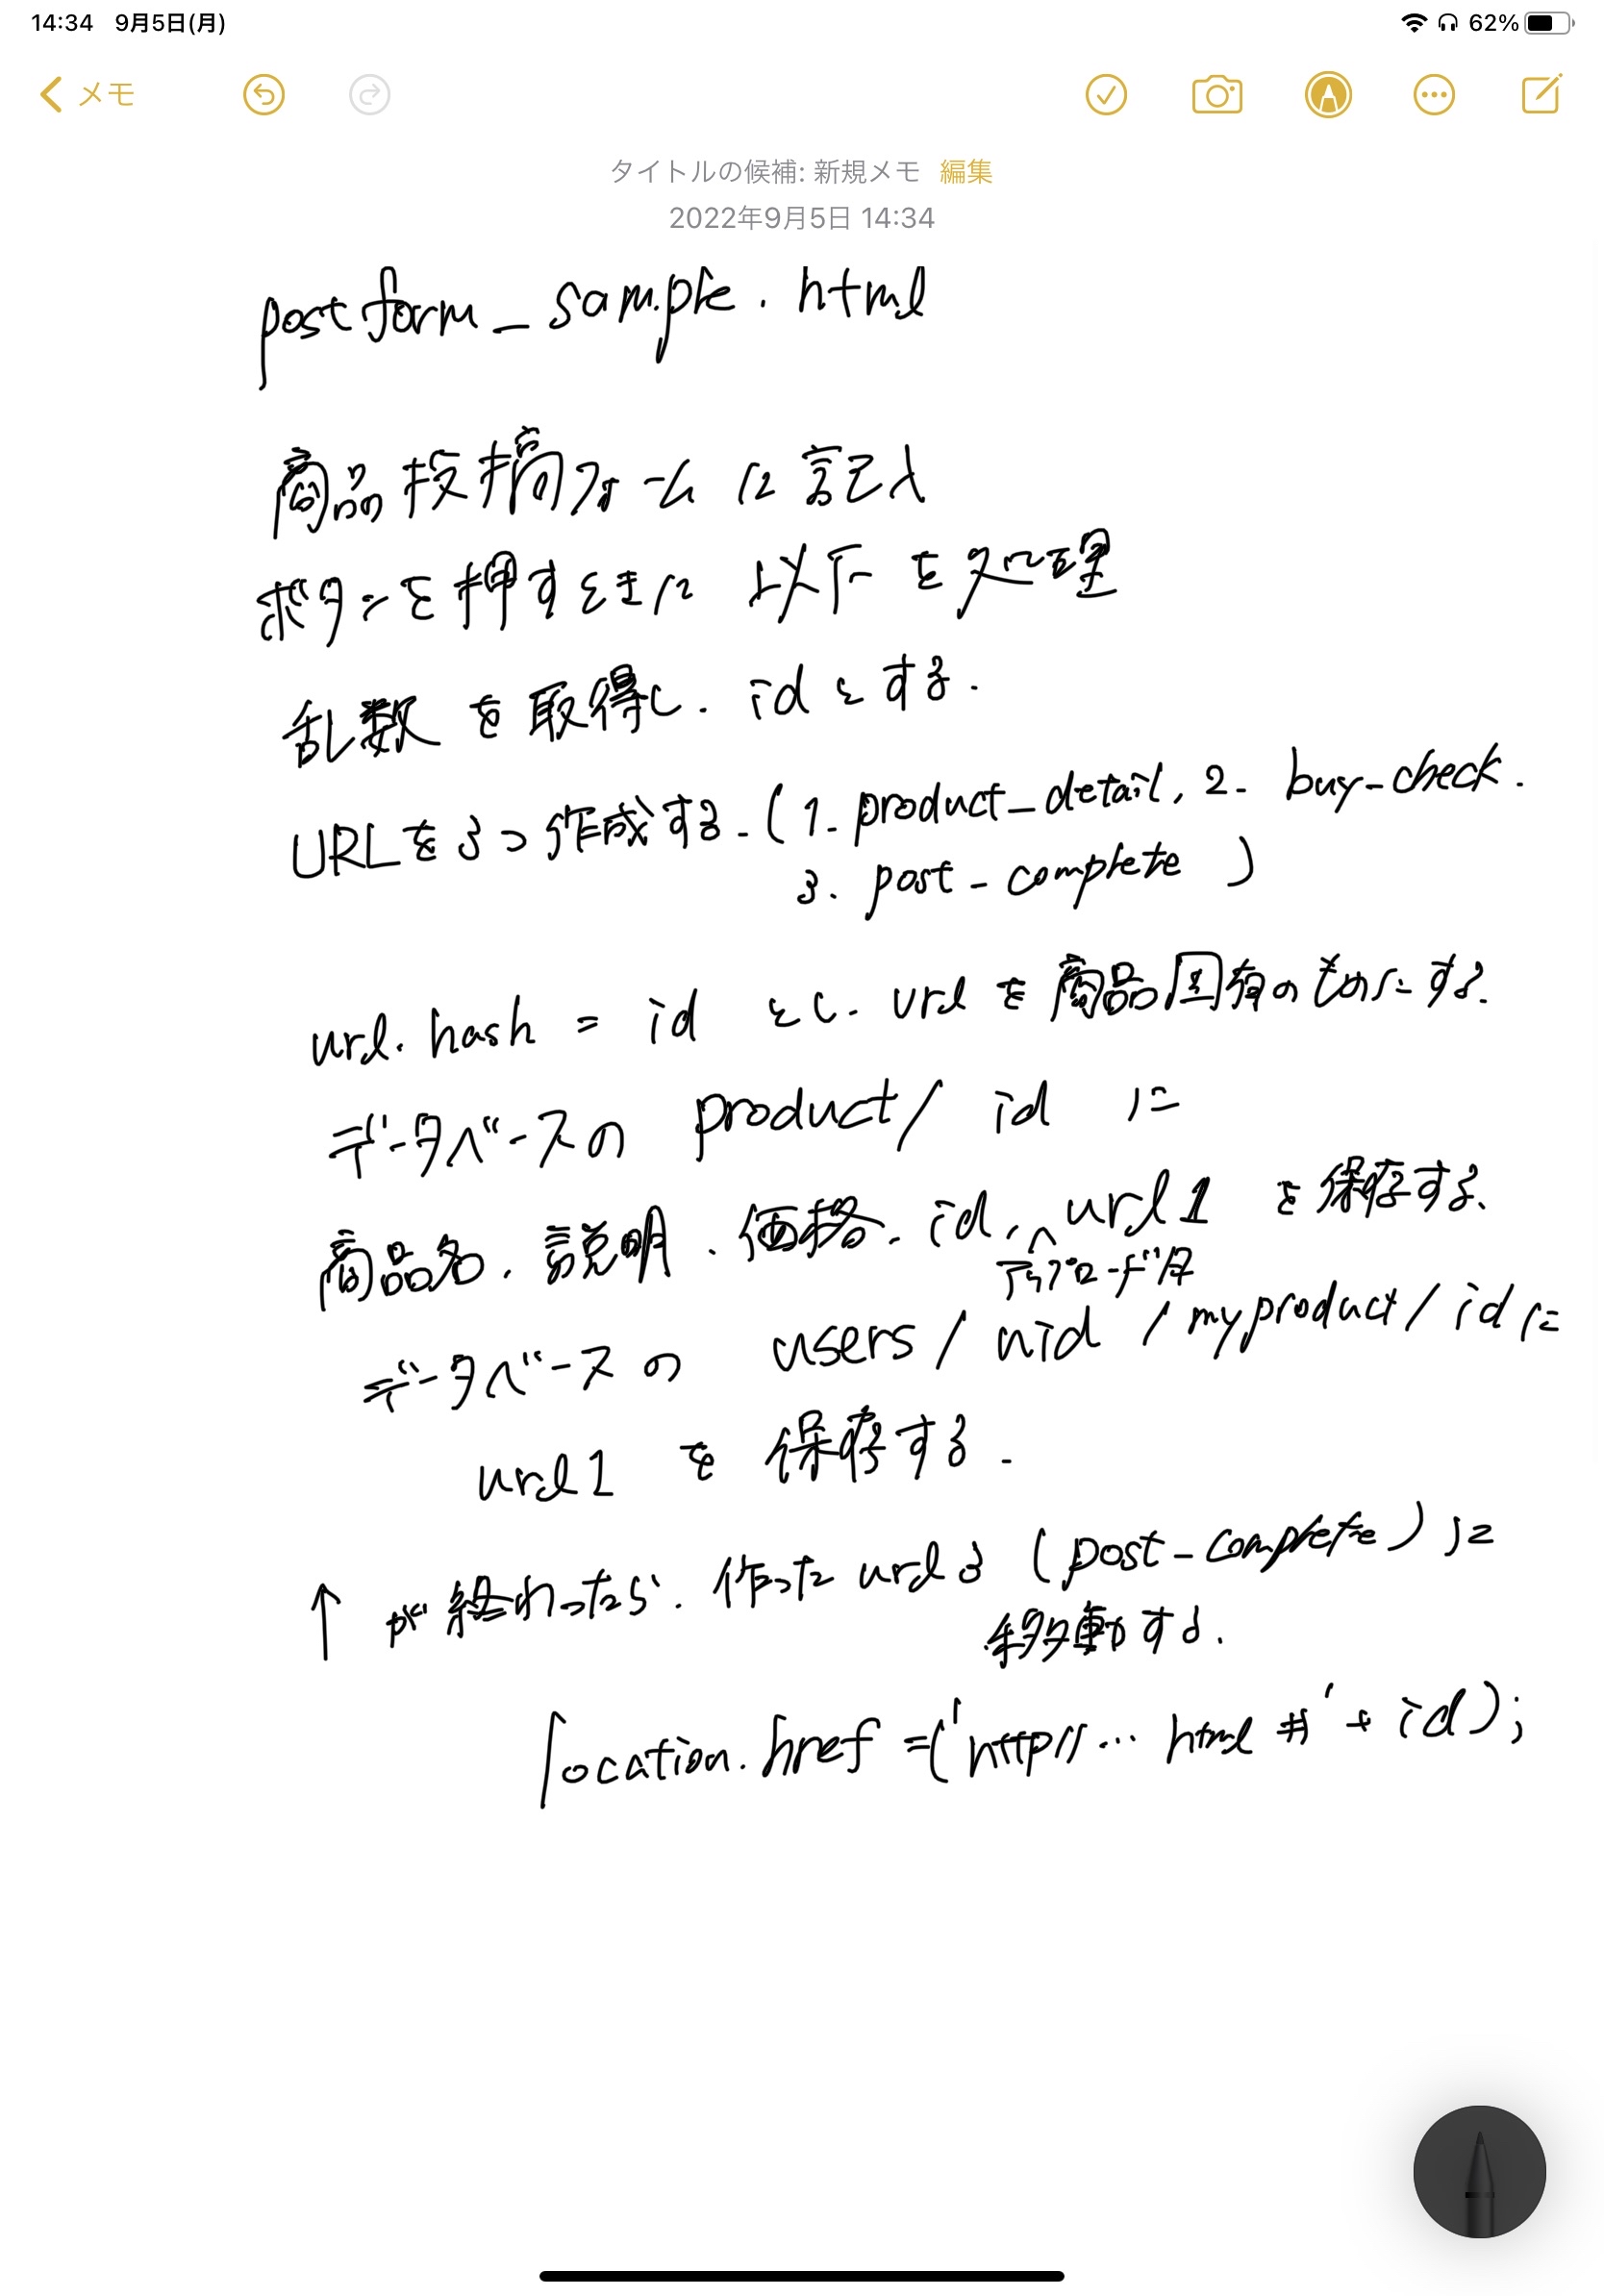 14:34 9月5日(月) 62%
メモ
タイトルの候補: 新規メモ 編集
2022年9月5日 14:34
postform_sample.html
商品投稿フォームに記入
ボタンを押すときに以下を処理
乱数を取得し、idとする.
URLを3つ作成する.(1.product_detail, 2. buy-check.
3. post-complete )
url.hash = id とし、urlを商品固有のものにする.
データベースの product/ id に
商品名、説明、価格、id、url1 を保存する、
アップロードバイタ
データベースの users/uid/myproduct/idに
url1 を保存する.
↑ が終わったら、作ったurl3 (post-complete)に
移動する.
location.href=('http//… html#'+id);